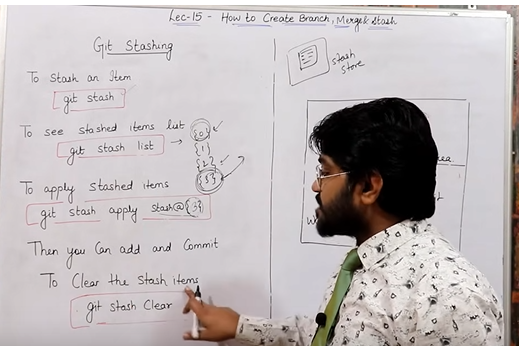 Lec-15 - How to Create Branch, Merge & Stash
Git Stashing
To Stash an Item
git stash
To see stashed items list
git stash list → {0}
{1}
{2}
{3}
To apply stashed items
git stash apply stash@{3}
Then you Can add and Commit
To Clear the Stash items
git stash Clear
stash
store